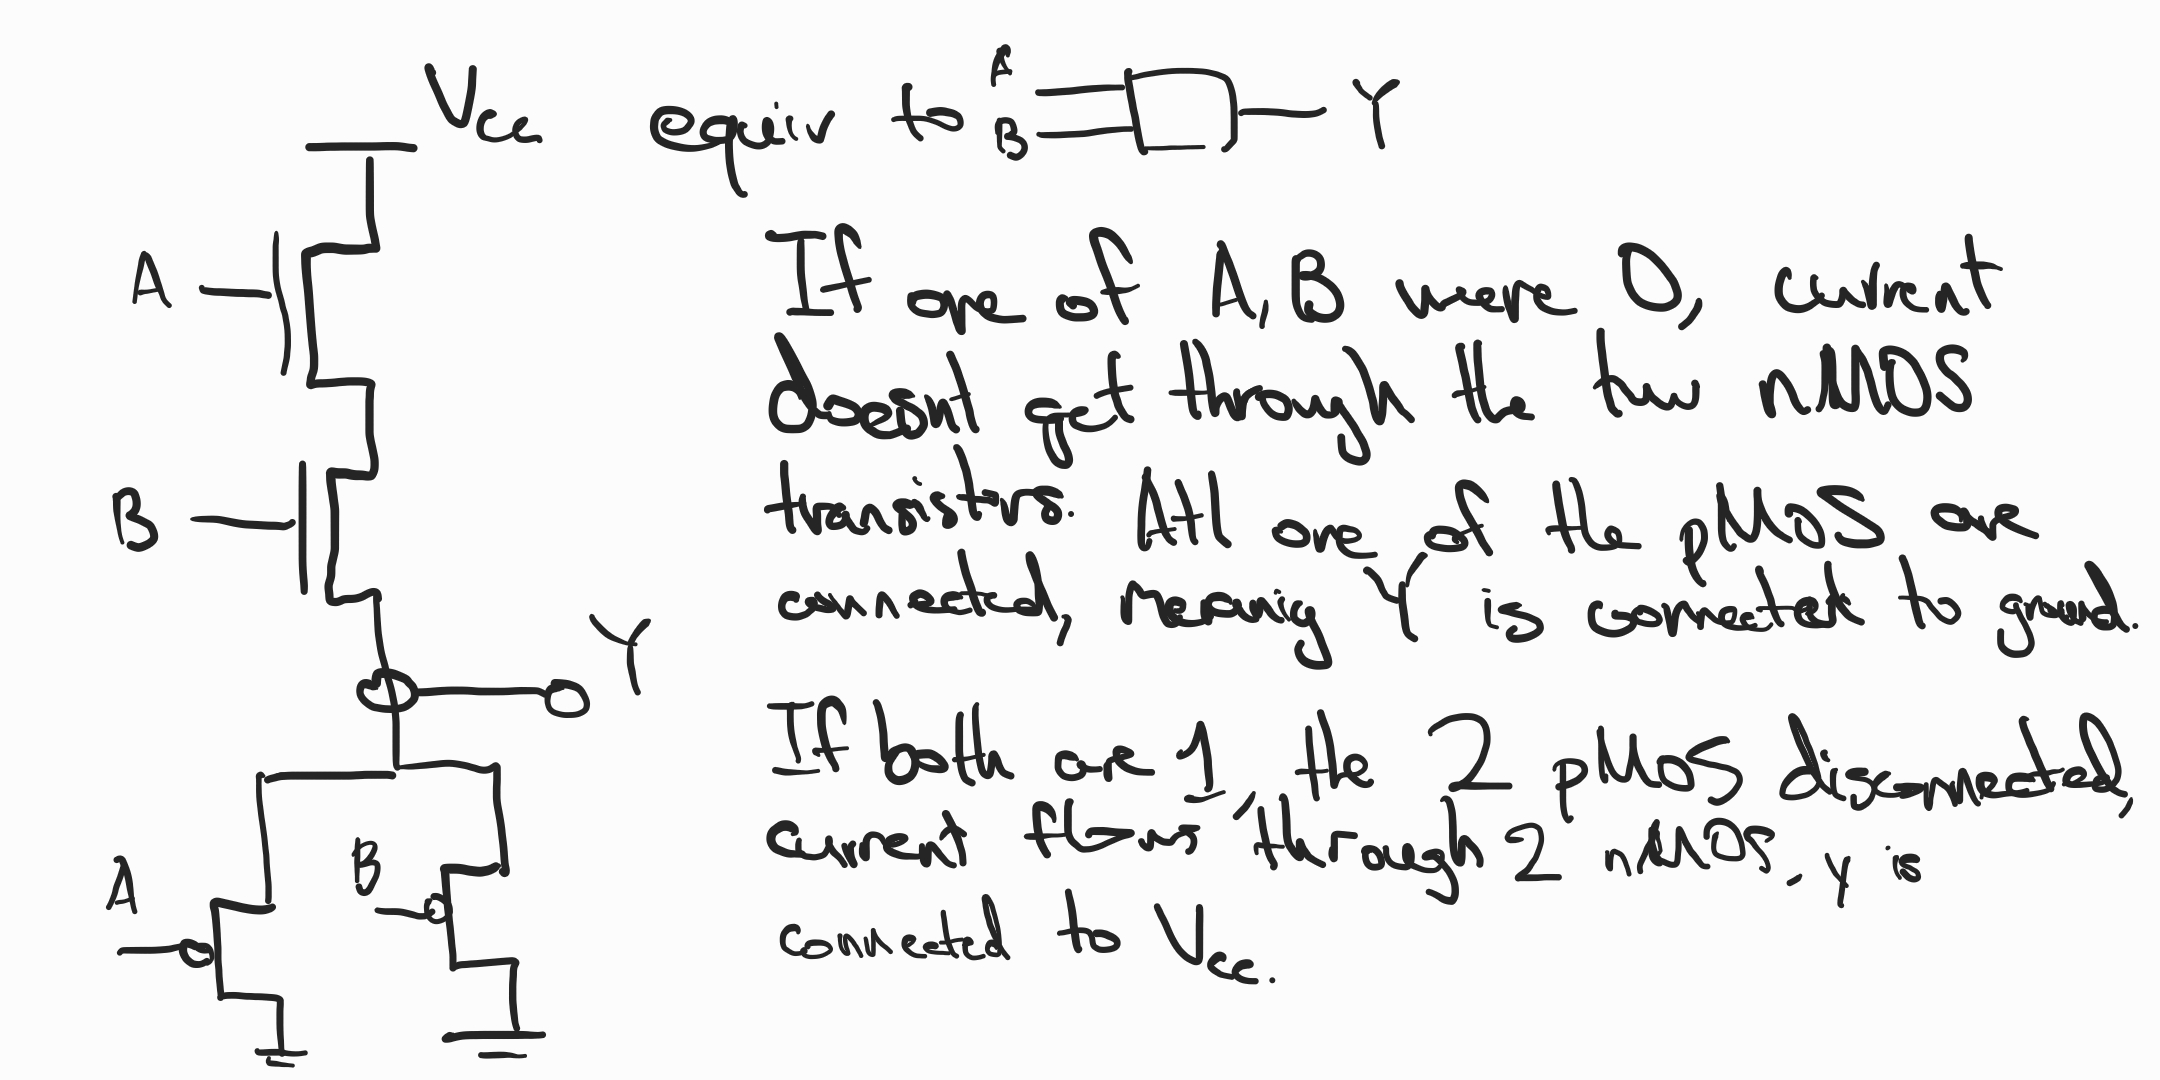 Vcc
equiv to A B Y
A
If one of A, B were 0, current
doesnt get through the two nMOS
B
transistors. Atl one of the pMOS are
connected, meaning Y is connected to ground.
Y
If both are 1, the 2 pMOS disconnected,
current flows through 2 nMOS, y is
A B
connected to Vcc.